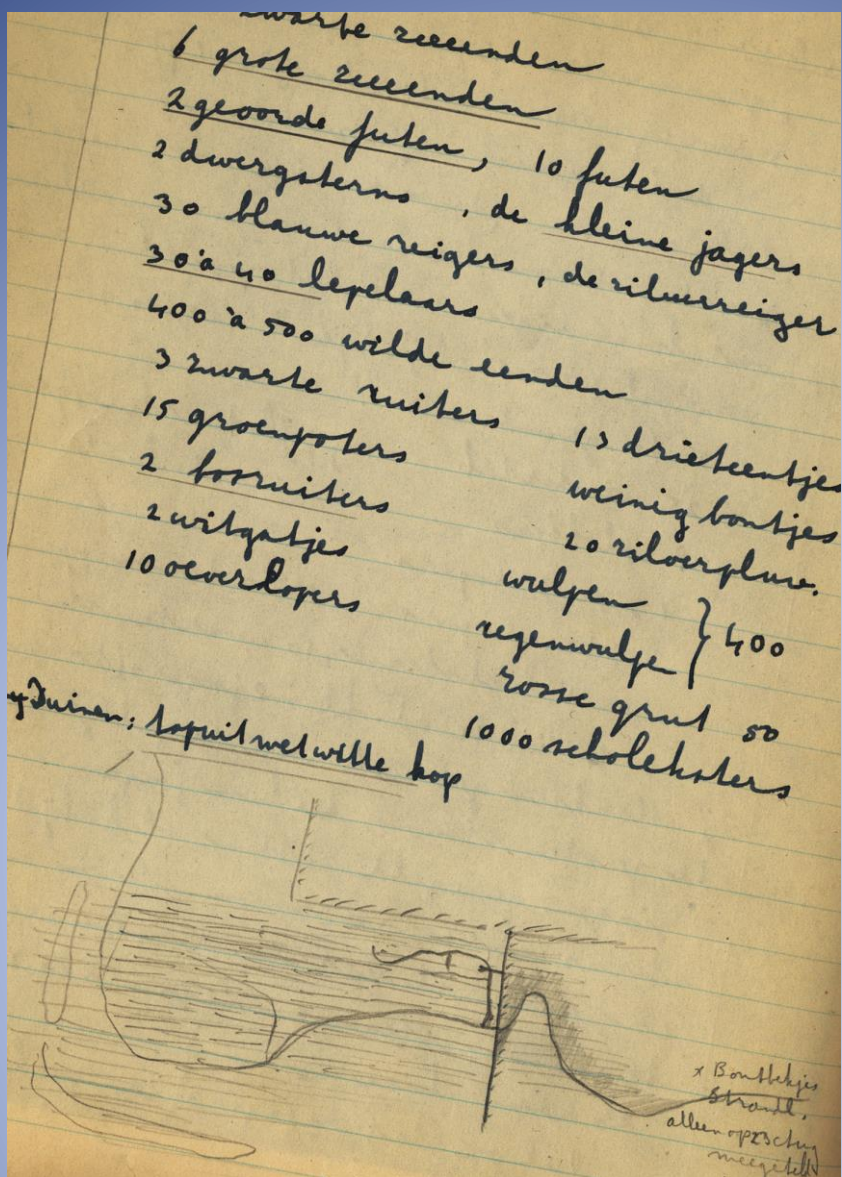 zwarte zeeenden
6 grote zeeenden
2 geoorde futen, 10 futen
2 dwergsterns, de kleine jagers
30 blauwe reigers, de zilverreiger
30 à 40 lepelaars
400 à 500 wilde eenden
3 zwarte ruiters
15 groenpoters
2 bosruiters
2 witgatjes
10 oeverlopers
13 drieteentjes
weinig bontjes
20 zilverpluv.
wulpen
regenwulpen } 400
rosse grut 50
1000 scholeksters
Duinen: tapuit met witte kop
x Bontbekjes
Strandl.
alleen op
meegeteld